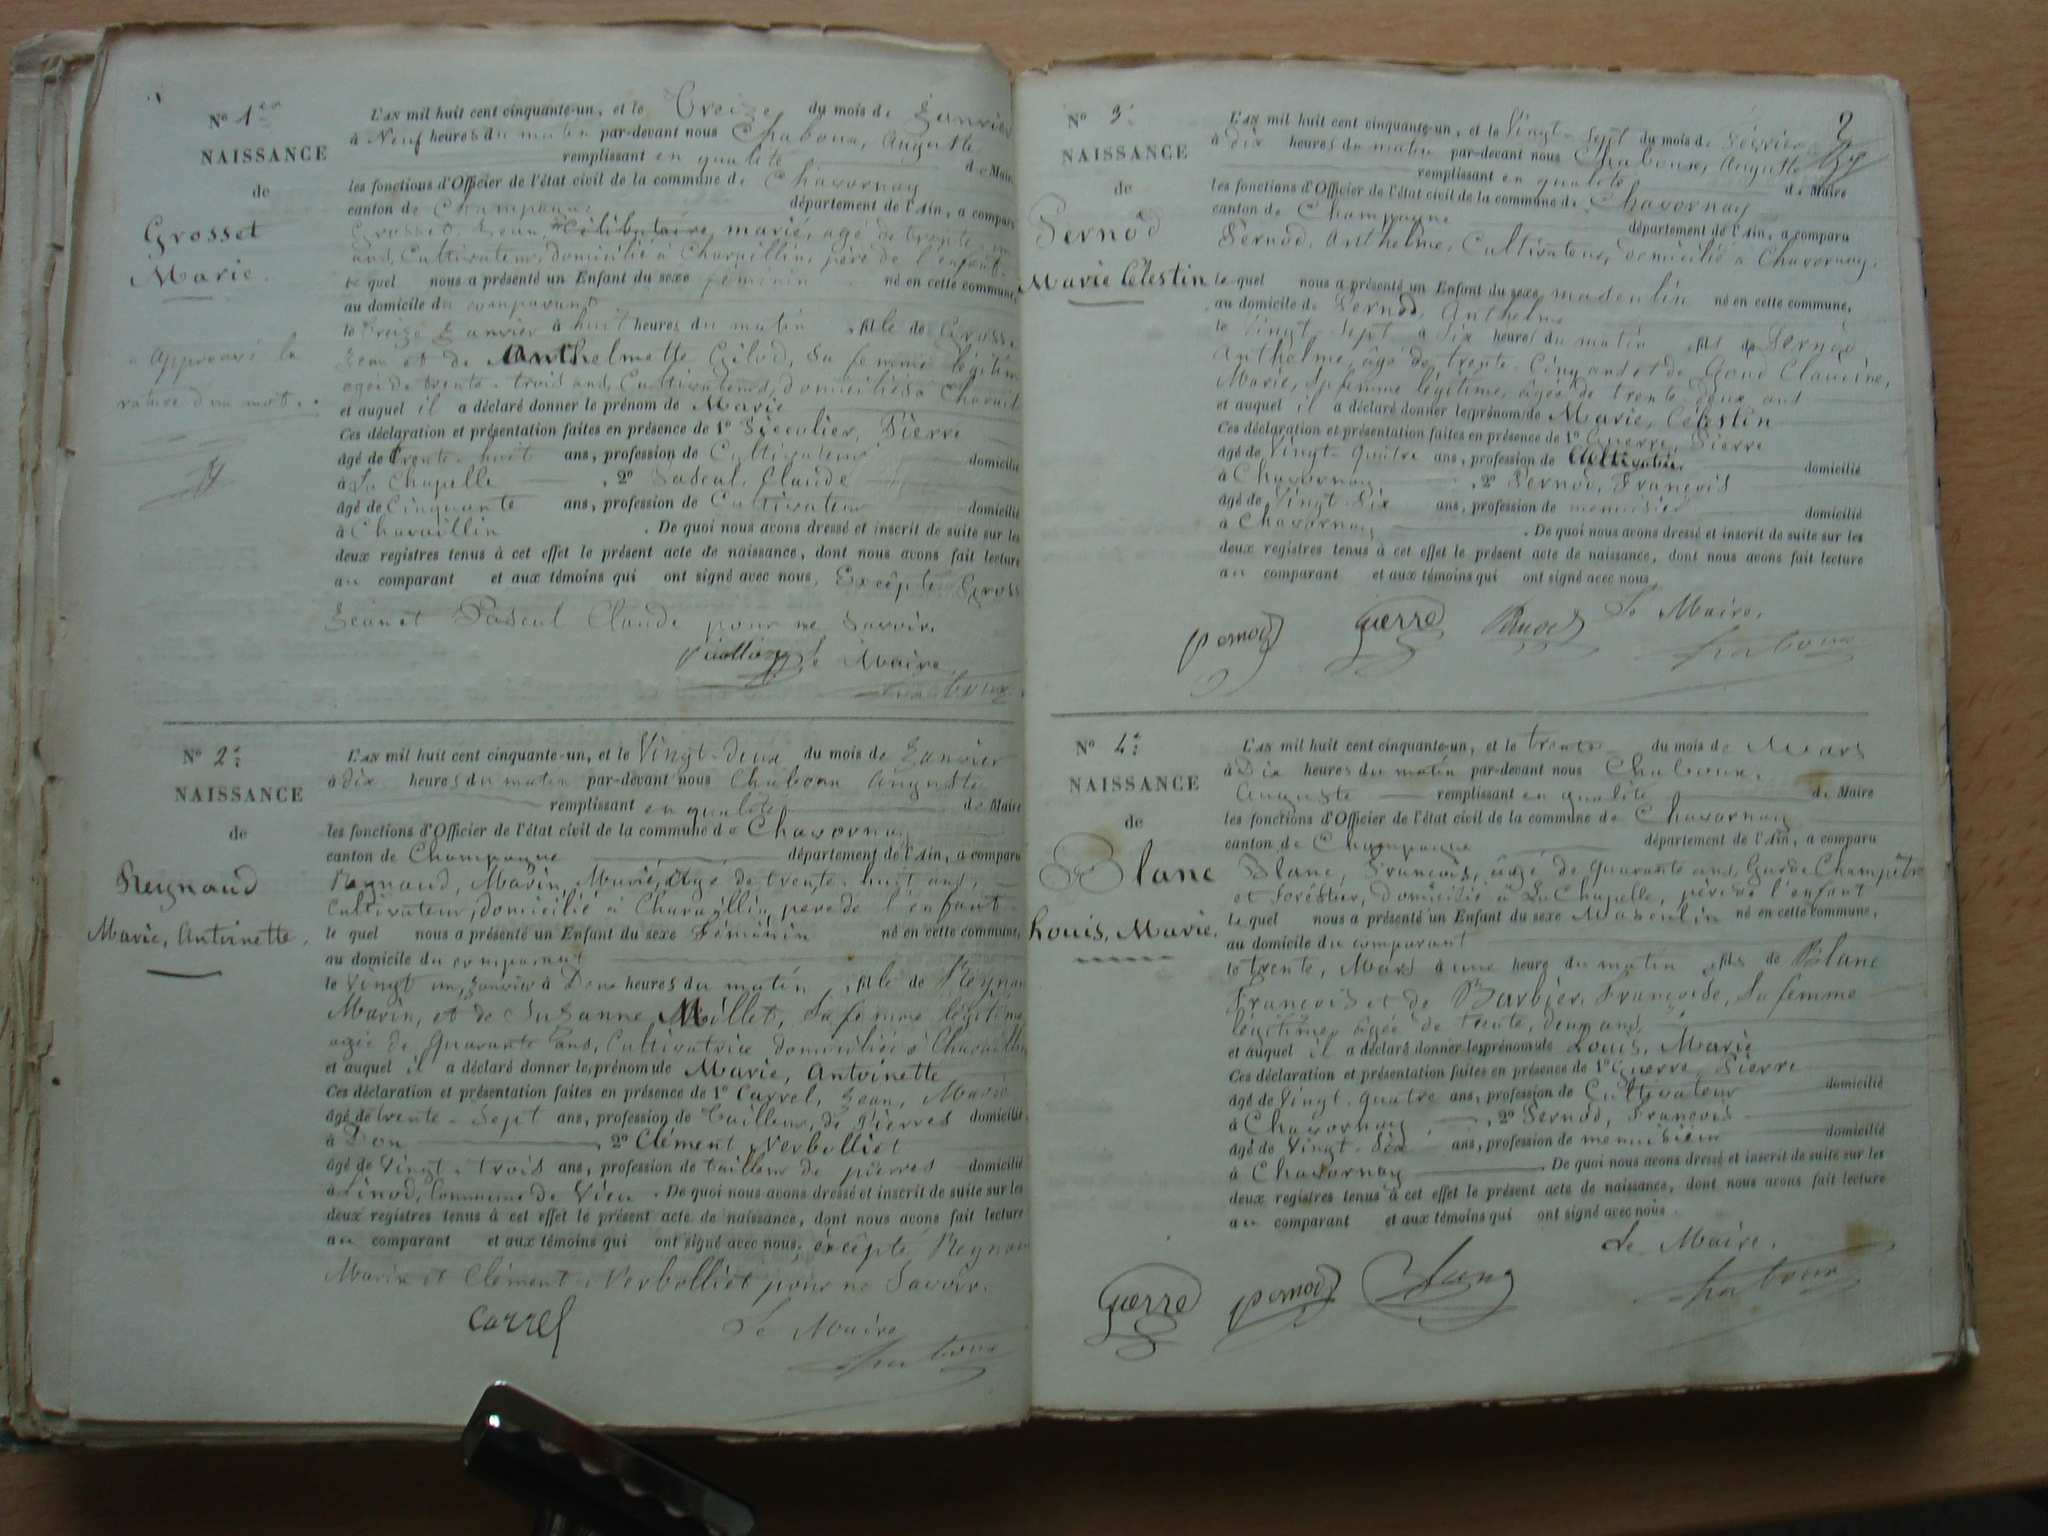 No 1er
NAISSANCE
de
Grosset
Marie.
approuvé la
rature d'un mot.
L'AN mil huit cent cinquante-un, et le Treize du mois de Janvier
à Neuf heures du matin par-devant nous Chaboux, Auguste
remplissant en qualité de Maire
les fonctions d'Officier de l'état civil de la commune de Chavornay
canton de Champagne département de l'Ain, a comparu
Grosset, Jean, Célibataire, marié, agé de trente
ans, Cultivateur, domicilié à Charaillin, père de l'enfant
le quel nous a présenté un Enfant du sexe féminin né en cette commune,
au domicile du comparant
le treize Janvier à huit heures du matin, fille de Gross
Jean et de Anthelmette Gilod, Sa femme légitim
agée de trente-trois ans, Cultivateurs, domiciliés à Charail
et auquel il a déclaré donner le prénom de Marie
Ces déclaration et présentation faites en présence de 1º Pierre
âgé de trente-huit ans, profession de Cultivateur domicilié
à La Chapelle, 2º Pascal, Claude
âgé de Cinquante ans, profession de Cultivateur domicilié
à Charaillin. De quoi nous avons dressé et inscrit de suite sur les
deux registres tenus à cet effet le présent acte de naissance, dont nous avons fait lecture
au comparant et aux témoins qui ont signé avec nous, Excepté Gross
Jean et Pascal Claude pour ne Savoir.
Le Maire
Chaboux
No 2e
NAISSANCE
de
Reynaud
Marie, Antoinette,
L'AN mil huit cent cinquante-un, et le Vingt-deux du mois de Janvier
à dix heures du matin par-devant nous Chaboux Auguste
remplissant en qualité de Maire
les fonctions d'Officier de l'état civil de la commune de Chavornay
canton de Champagne département de l'Ain, a comparu
Reynaud, Marin, Marié, âgé de trente-huit ans,
Cultivateur, domicilié à Charaillin, père de l'enfant
le quel nous a présenté un Enfant du sexe Féminin né en cette commune,
au domicile du comparant
le Vingt un, Janvier à Deux heures du matin, fille de Reynau
Marin, et de Suzanne Millet, Sa femme légitime
agée de Quarante ans, Cultivatrice domiciliée à Charaillin
et auquel il a déclaré donner les prénom de Marie, Antoinette
Ces déclaration et présentation faites en présence de 1º Carrel, Jean, Marie
âgé de trente-Sept ans, profession de tailleur, de Pierres domicilié
à Don, 2º Clément Verbolliet
âgé de Vingt-trois ans, profession de tailleur de pierres domicilié
à Linod, Commune de Vieu. De quoi nous avons dressé et inscrit de suite sur les
deux registres tenus à cet effet le présent acte de naissance, dont nous avons fait lecture
au comparant et aux témoins qui ont signé avec nous, excépté Reynau
Marin et Clément, Verbolliet pour ne Savoir.
Carrel
Le Maire
Chaboux
2
No 3e
NAISSANCE
de
Pernod
Marie Célestin
L'AN mil huit cent cinquante-un, et le Vingt-Sept du mois de Février
à dix heures du matin par-devant nous Chaboux, Auguste
remplissant en qualité de Maire
les fonctions d'Officier de l'état civil de la commune de Chavornay
canton de Champagne département de l'Ain, a comparu
Pernod, Anthelme, Cultivateur, domicilié à Chavornay,
le quel nous a présenté un Enfant du sexe masculin né en cette commune,
au domicile de Pernod, Anthelme
le Vingt-Sept à Six heures du matin, fils de Pernod
Anthelme, âgé de trente-Cinq ans et de Claudine,
Marie, Sa femme légitime, âgée de trente-deux ans
et auquel il a déclaré donner les prénom de Marie, Célestin
Ces déclaration et présentation faites en présence de 1º Guerre, Pierre
âgé de Vingt-Quatre ans, profession de Cultivateur domicilié
à Chavornay, 2º Pernod, François
âgé de Vingt-Six ans, profession de menuisier domicilié
à Chavornay. De quoi nous avons dressé et inscrit de suite sur les
deux registres tenus à cet effet le présent acte de naissance, dont nous avons fait lecture
au comparant et aux témoins qui ont signé avec nous,
Le Maire.
pernod Guerre
Chaboux
No 4e
NAISSANCE
de
Blanc
Louis, Marie,
L'AN mil huit cent cinquante-un, et le trente du mois de Mars
à Dix heures du matin par-devant nous Chaboux,
Auguste remplissant en qualité de Maire
les fonctions d'Officier de l'état civil de la commune de Chavornay
canton de Champagne département de l'Ain, a comparu
Blanc, François, âgé de quarante ans, Garde Champêtre
et Foréstier, domicilié à La Chapelle, père de l'enfant
le quel nous a présenté un Enfant du sexe Masculin né en cette commune,
au domicile du comparant
le trente, Mars à une heure du matin, fils de Blanc
François et de Barbier, Françoise, Sa femme
légitime, âgée de trente, deux ans,
et auquel il a déclaré donner les prénom de Louis, Marie
Ces déclaration et présentation faites en présence de 1º Guerre, Pierre
âgé de Vingt-quatre ans, profession de Cultivateur domicilié
à Chavornay, 2º Pernod, François
âgé de Vingt-Six ans, profession de menuisier domicilié
à Chavornay. De quoi nous avons dressé et inscrit de suite sur les
deux registres tenus à cet effet le présent acte de naissance, dont nous avons fait lecture
au comparant et aux témoins qui ont signé avec nous.
Le Maire.
Guerre pernod Blanc
Chaboux